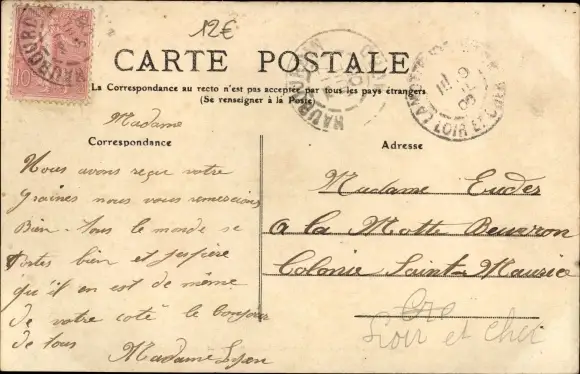 12€
10
MAUBOURGUET
CARTE POSTALE
La Correspondance au recto n'est pas acceptée par tous les pays étrangers
(Se renseigner à la Poste)
Correspondance
Madame
Nous avons reçue votre
graines nous vous remercions
Bien. Tous le monde se
Portes bien et j'espère
qu'il en est de même
de votre coté le bonjour
de tous
Madame Lyon
Adresse
Madame Eudes
a la Motte Beuvron
Colonie Saint-Maurice
Loir et Cher
LOIR ET CHER